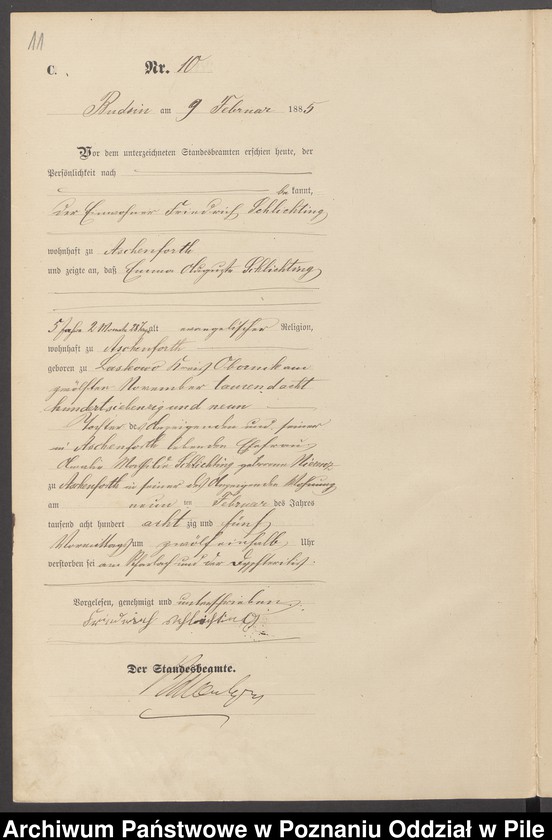 11
C.
Nr. 10
Rudsin am 9 Februar 1885
Vor dem unterzeichneten Standesbeamten erschien heute, der
Persönlichkeit nach
bekannt,
der Einwohner Friedrich Schlichting
wohnhaft zu Aschenforth
und zeigte an, daß Emma Auguste Schlichting
5 Jahre 2 Monate 28 Tage alt evangelischer Religion,
wohnhaft zu Aschenforth
geboren zu Laskowo Kreis Obornik am
zwölften November tausend acht
hundert siebenzig und neun
Tochter des Anzeigenden und seiner
in Aschenforth lebenden Ehefrau
Amalie Mathilde Schlichting geborene
zu Aschenforth in seiner des Anzeigenden Wohnung
am neun ten Februar des Jahres
tausend acht hundert achtzig und fünf
Vormittags um zwölf einhalb Uhr
verstorben sei am Scharlach und der Dyphteritis.
Vorgelesen, genehmigt und unterschrieben
Friedrich Schlichting
Der Standesbeamte.
Archiwum Państwowe w Poznaniu Oddział w Pile